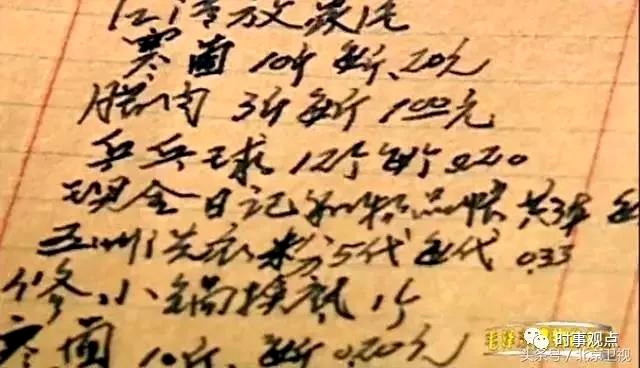 寒菌 10斤 每斤 .20元
腊肉 3斤 每斤 1.00元
乒乓球 12个 每个 0.20
现金日记和物品帐 共3本
五洲洗衣粉 5代 每代 0.33
修小锅换底 1个
寒菌 10斤 每斤 0.20元
时事观点
头条号/北京卫视